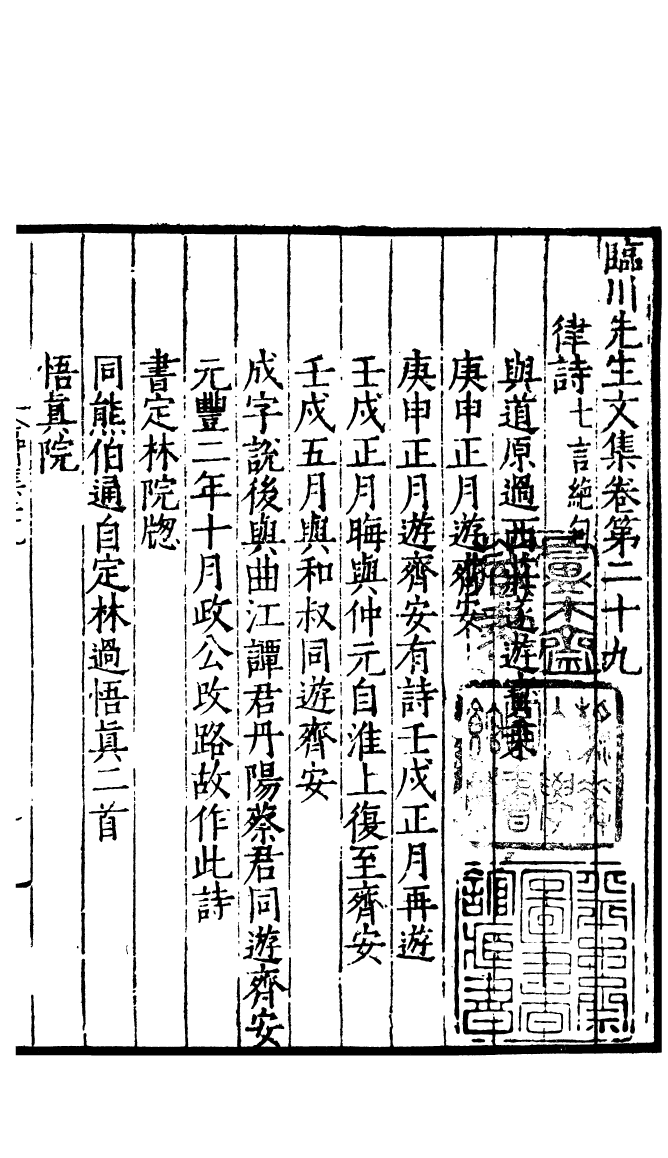 臨川先生文集卷第二十九
律詩七言絕句
與道原過西莊遂遊寶乘
庚申正月遊齊安
庚申正月遊齊安有詩壬戌正月再遊
壬戌正月晦與仲元自淮上復至齊安
壬戌五月與和叔同遊齊安
成字說後與曲江譚君丹陽蔡君同遊齊安
元豐二年十月政公改路故作此詩
書定林院牕
同熊伯通自定林過悟真二首
悟真院